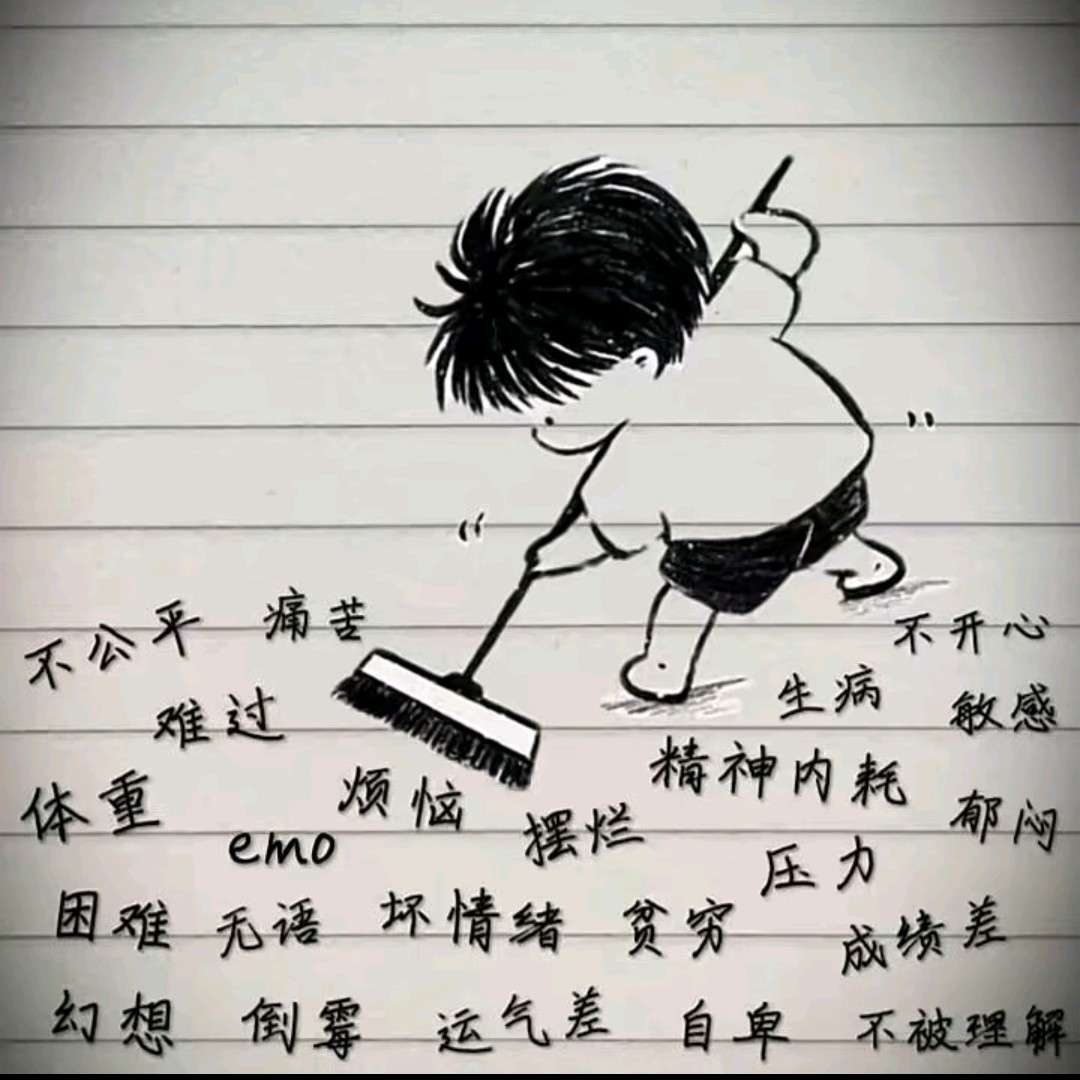 不公平 痛苦 不开心
难过 生病 敏感
体重 烦恼 精神内耗 郁闷
emo 摆烂 压力
困难 无语 坏情绪 贫穷 成绩差
幻想 倒霉 运气差 自卑 不被理解